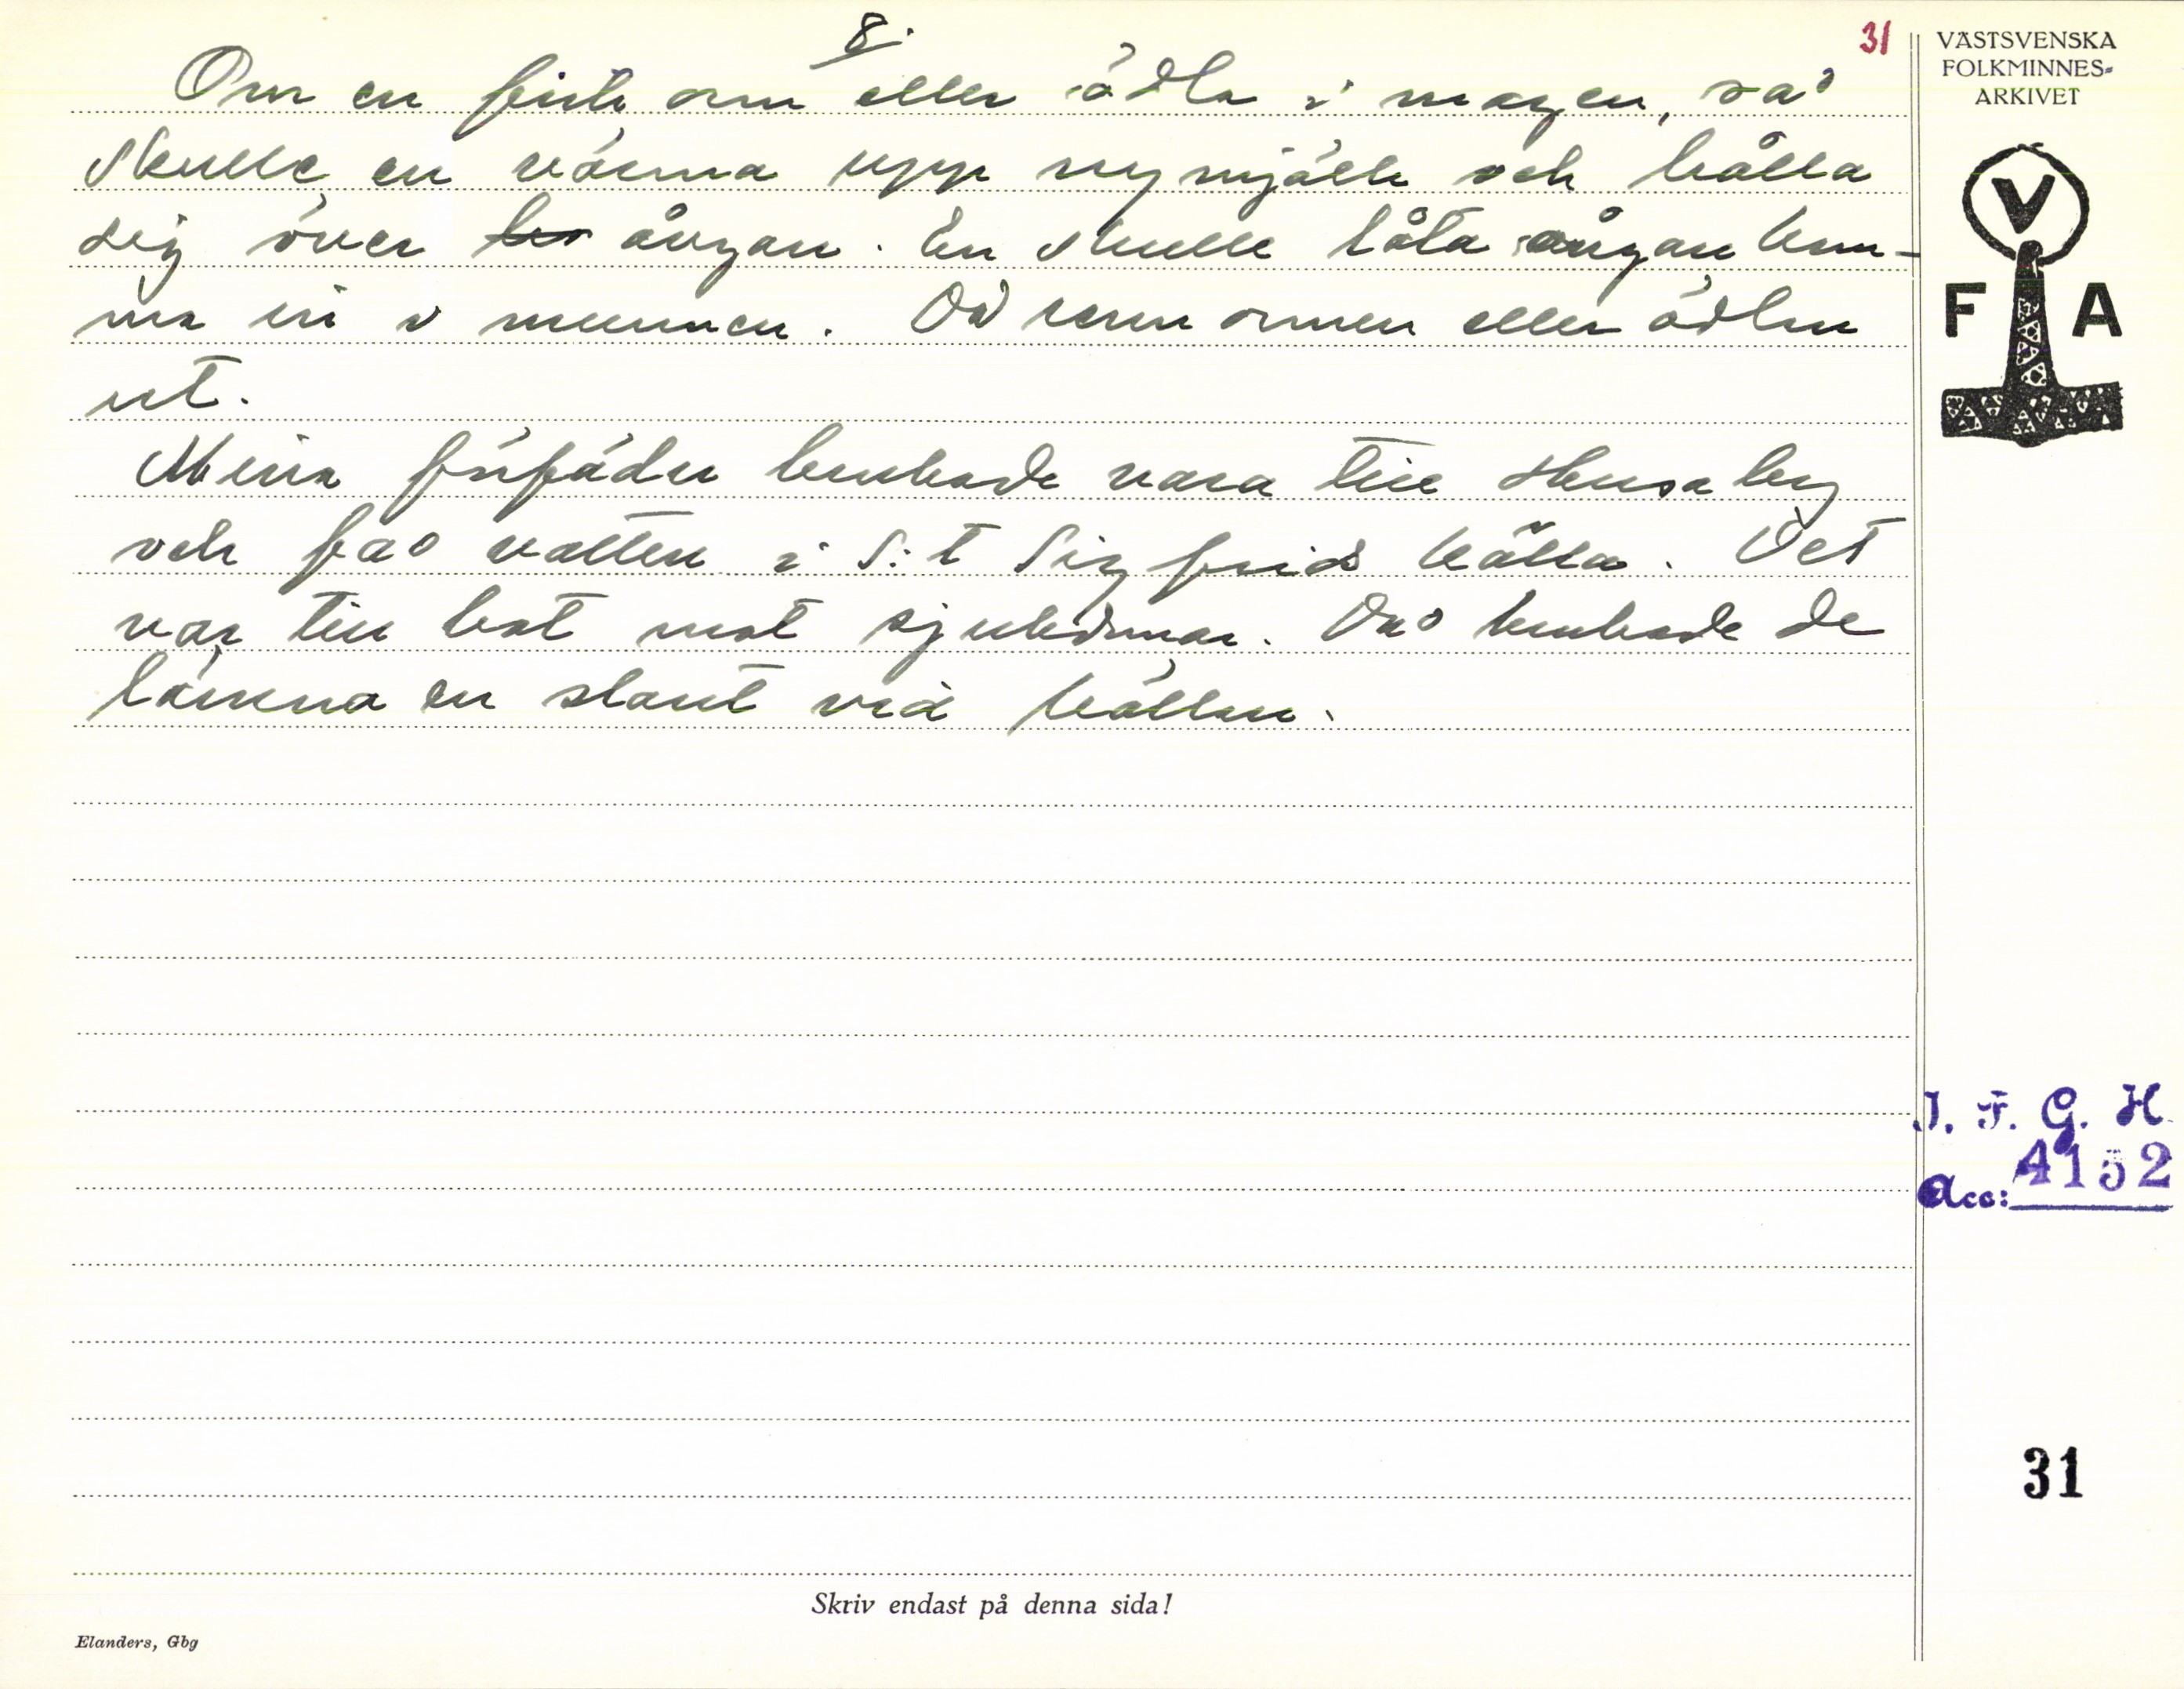 8.
31
Om en fick orm eller ödla i magen, så
skulle en värma upp ny mjölk och hålla
sig över ångan. En skulle låta ångan kom-
ma in i munnen. Då kom ormen eller ödlan
ut.
Mina förfäder brukade vara till Husaby
och få vatten i S:t Sigfrids källa. Det
var till bot mot sjukdomar. Då brukade de
lämna en slant vid källan.
VÄSTSVENSKA
FOLKMINNES-
ARKIVET
V
F A
I. F. G. H.
Acc: 4152
31
Skriv endast på denna sida!
Elanders, Gbg